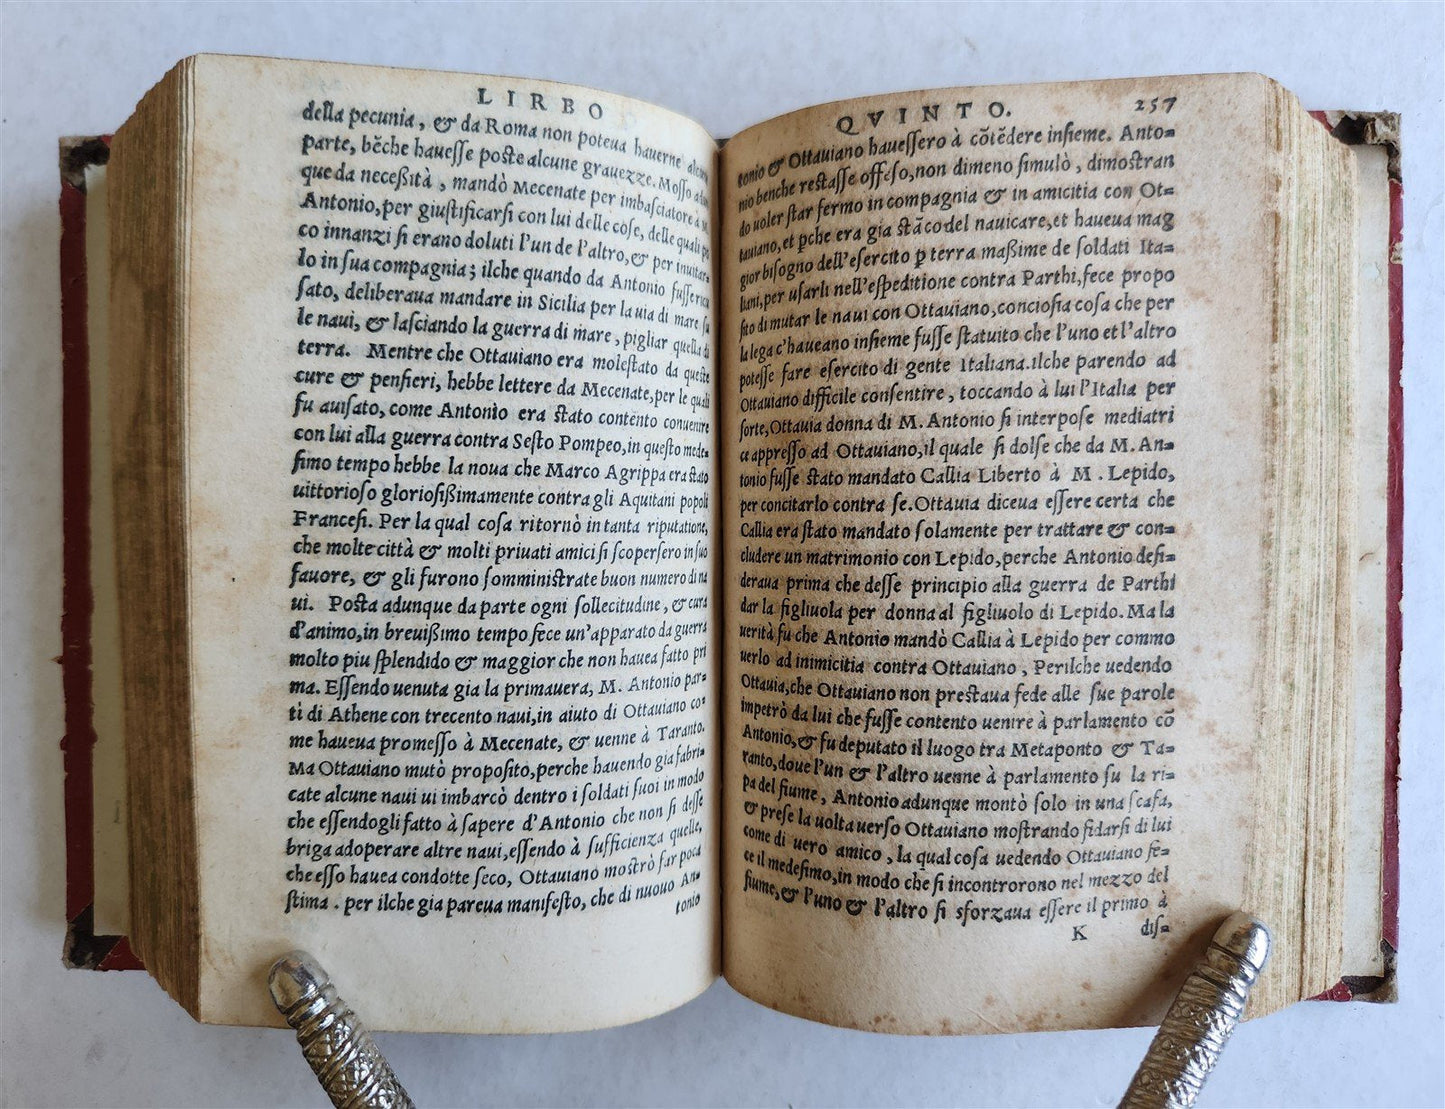 LIRBO
della pecunia, & da Roma non poteua hauerne alcuna
parte, bẽche hauesse poste alcune grauezze. Mosso
que da neceßità, mandò Mecenate per imbasciatore à M.
Antonio, per giustificarsi con lui delle cose, delle quali
co innanzi si erano doluti l'un de l'altro, & per inuitar-
lo in sua compagnia; ilche quando da Antonio fusse
sato, deliberaua mandare in Sicilia per la uia di mare su
le naui, & lasciando la guerra di mare, pigliar quella di
terra. Mentre che Ottauiano era molestato da queste
cure & pensieri, hebbe lettere da Mecenate, per le quali
fu auisato, come Antonio era stato contento conuenire
con lui alla guerra contra Sesto Pompeo, in questo mede-
simo tempo hebbe la noua che Marco Agrippa era stato
uittorioso gloriosißimamente contra gli Aquitani popoli
Francesi. Per la qual cosa ritornò in tanta riputatione,
che molte città & molti priuati amici si scopersero in suo
fauore, & gli furono somministrate buon numero di na
ui. Posta adunque da parte ogni sollecitudine, & cura
d'animo, in breuißimo tempo fece un'apparato da guerra
molto piu splendido & maggior che non hauea fatto pri
ma. Essendo uenuta gia la primauera, M. Antonio par-
tì di Athene con trecento naui, in aiuto di Ottauiano co-
me haueua promesso à Mecenate, & uenne à Taranto.
Ma Ottauiano mutò proposito, perche hauendo gia fabri-
cate alcune naui ui imbarcò dentro i soldati suoi in modo
che essendogli fatto à sapere d'Antonio che non si desse
briga adoperare altre naui, essendo à sufficienza quelle,
che esso hauea condotte seco, Ottauiano mostrò far poca
stima. per ilche gia pareua manifesto, che di nuouo An-
tonio
QVINTO. 257
tonio & Ottauiano hauessero à cõtẽdere insieme. Anto-
nio benche restasse offeso, non dimeno simulò, dimostran
do uoler star fermo in compagnia & in amicitia con Ot-
tauiano, et ꝑche era gia stãco del nauicare, et haueua mag
gior bisogno dell'esercito ꝑ terra maßime de soldati Ita-
liani, per usarli nell'espeditione contra Parthi, fece propo
sito di mutar le naui con Ottauiano, conciosia cosa che per
la lega c'haueano insieme fusse statuito che l'uno et l'altro
potesse fare esercito di gente Italiana. ilche parendo ad
Ottauiano difficile consentire, toccando à lui l'Italia per
sorte, Ottauia donna di M. Antonio si interpose mediatri
ce appresso ad Ottauiano, il quale si dolse che da M. An-
tonio fusse stato mandato Callia Liberto à M. Lepido,
per concitarlo contra se. Ottauia diceua essere certa che
Callia era stato mandato solamente per trattare & con-
cludere un matrimonio con Lepido, perche Antonio desi-
deraua prima che desse principio alla guerra de Parthi
dar la figliuola per donna al figliuolo di Lepido. Ma la
uerità fu che Antonio mandò Callia à Lepido per commo
uerlo ad inimicitia contra Ottauiano, Perilche uedendo
Ottauia, che Ottauiano non prestaua fede alle sue parole
impetrò da lui che fusse contento uenire à parlamento cõ
Antonio, & fu deputato il luogo tra Metaponto & Ta-
ranto, doue l'un & l'altro uenne à parlamento su la ri-
pa del fiume, Antonio adunque montò solo in una scafa,
& prese la uolta uerso Ottauiano mostrando fidarsi di lui
come di uero amico, la qual cosa uedendo Ottauiano fe-
ce il medesimo, in modo che si incontrorono nel mezzo del
fiume, & l'uno & l'altro si sforzaua essere il primo à
K dis-